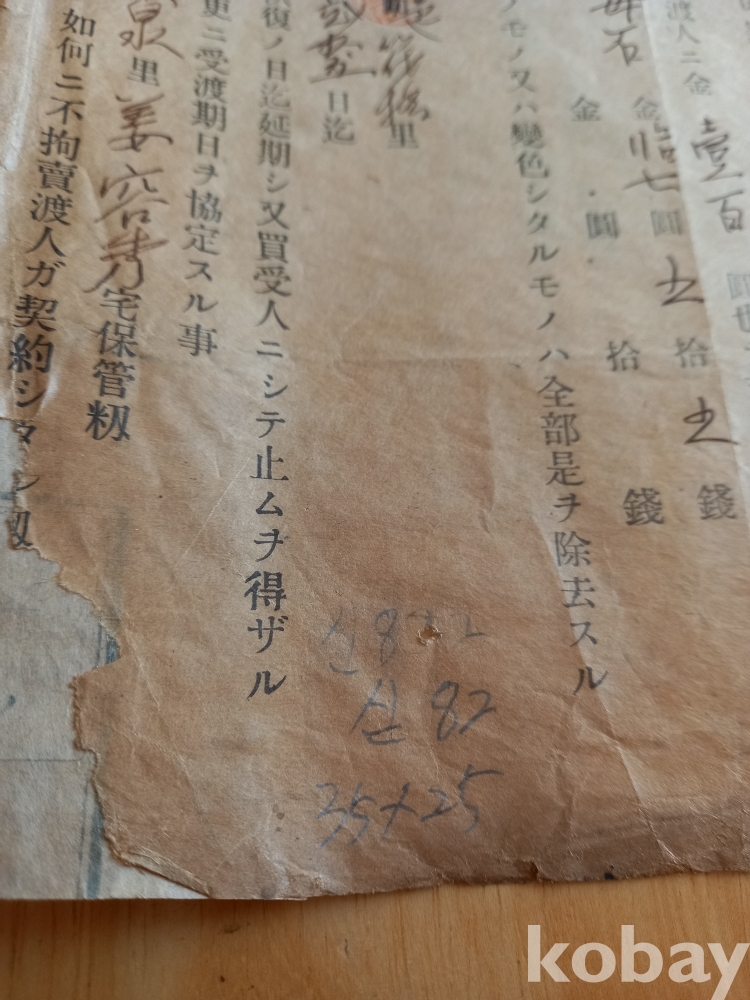 渡人ニ金 壹百 圓
金 七 圓 五 拾 五 錢
金 圓 拾 錢
モノ又ハ變色シタルモノハ全部是ヲ除去スル
里
日迄
復ノ日迄延期シ又買受人ニシテ止ムヲ得ザル
更ニ受渡期日ヲ協定スル事
泉里姜 宅保管籾
如何ニ不拘賣渡人ガ契約シタ
82
35+25
kobay